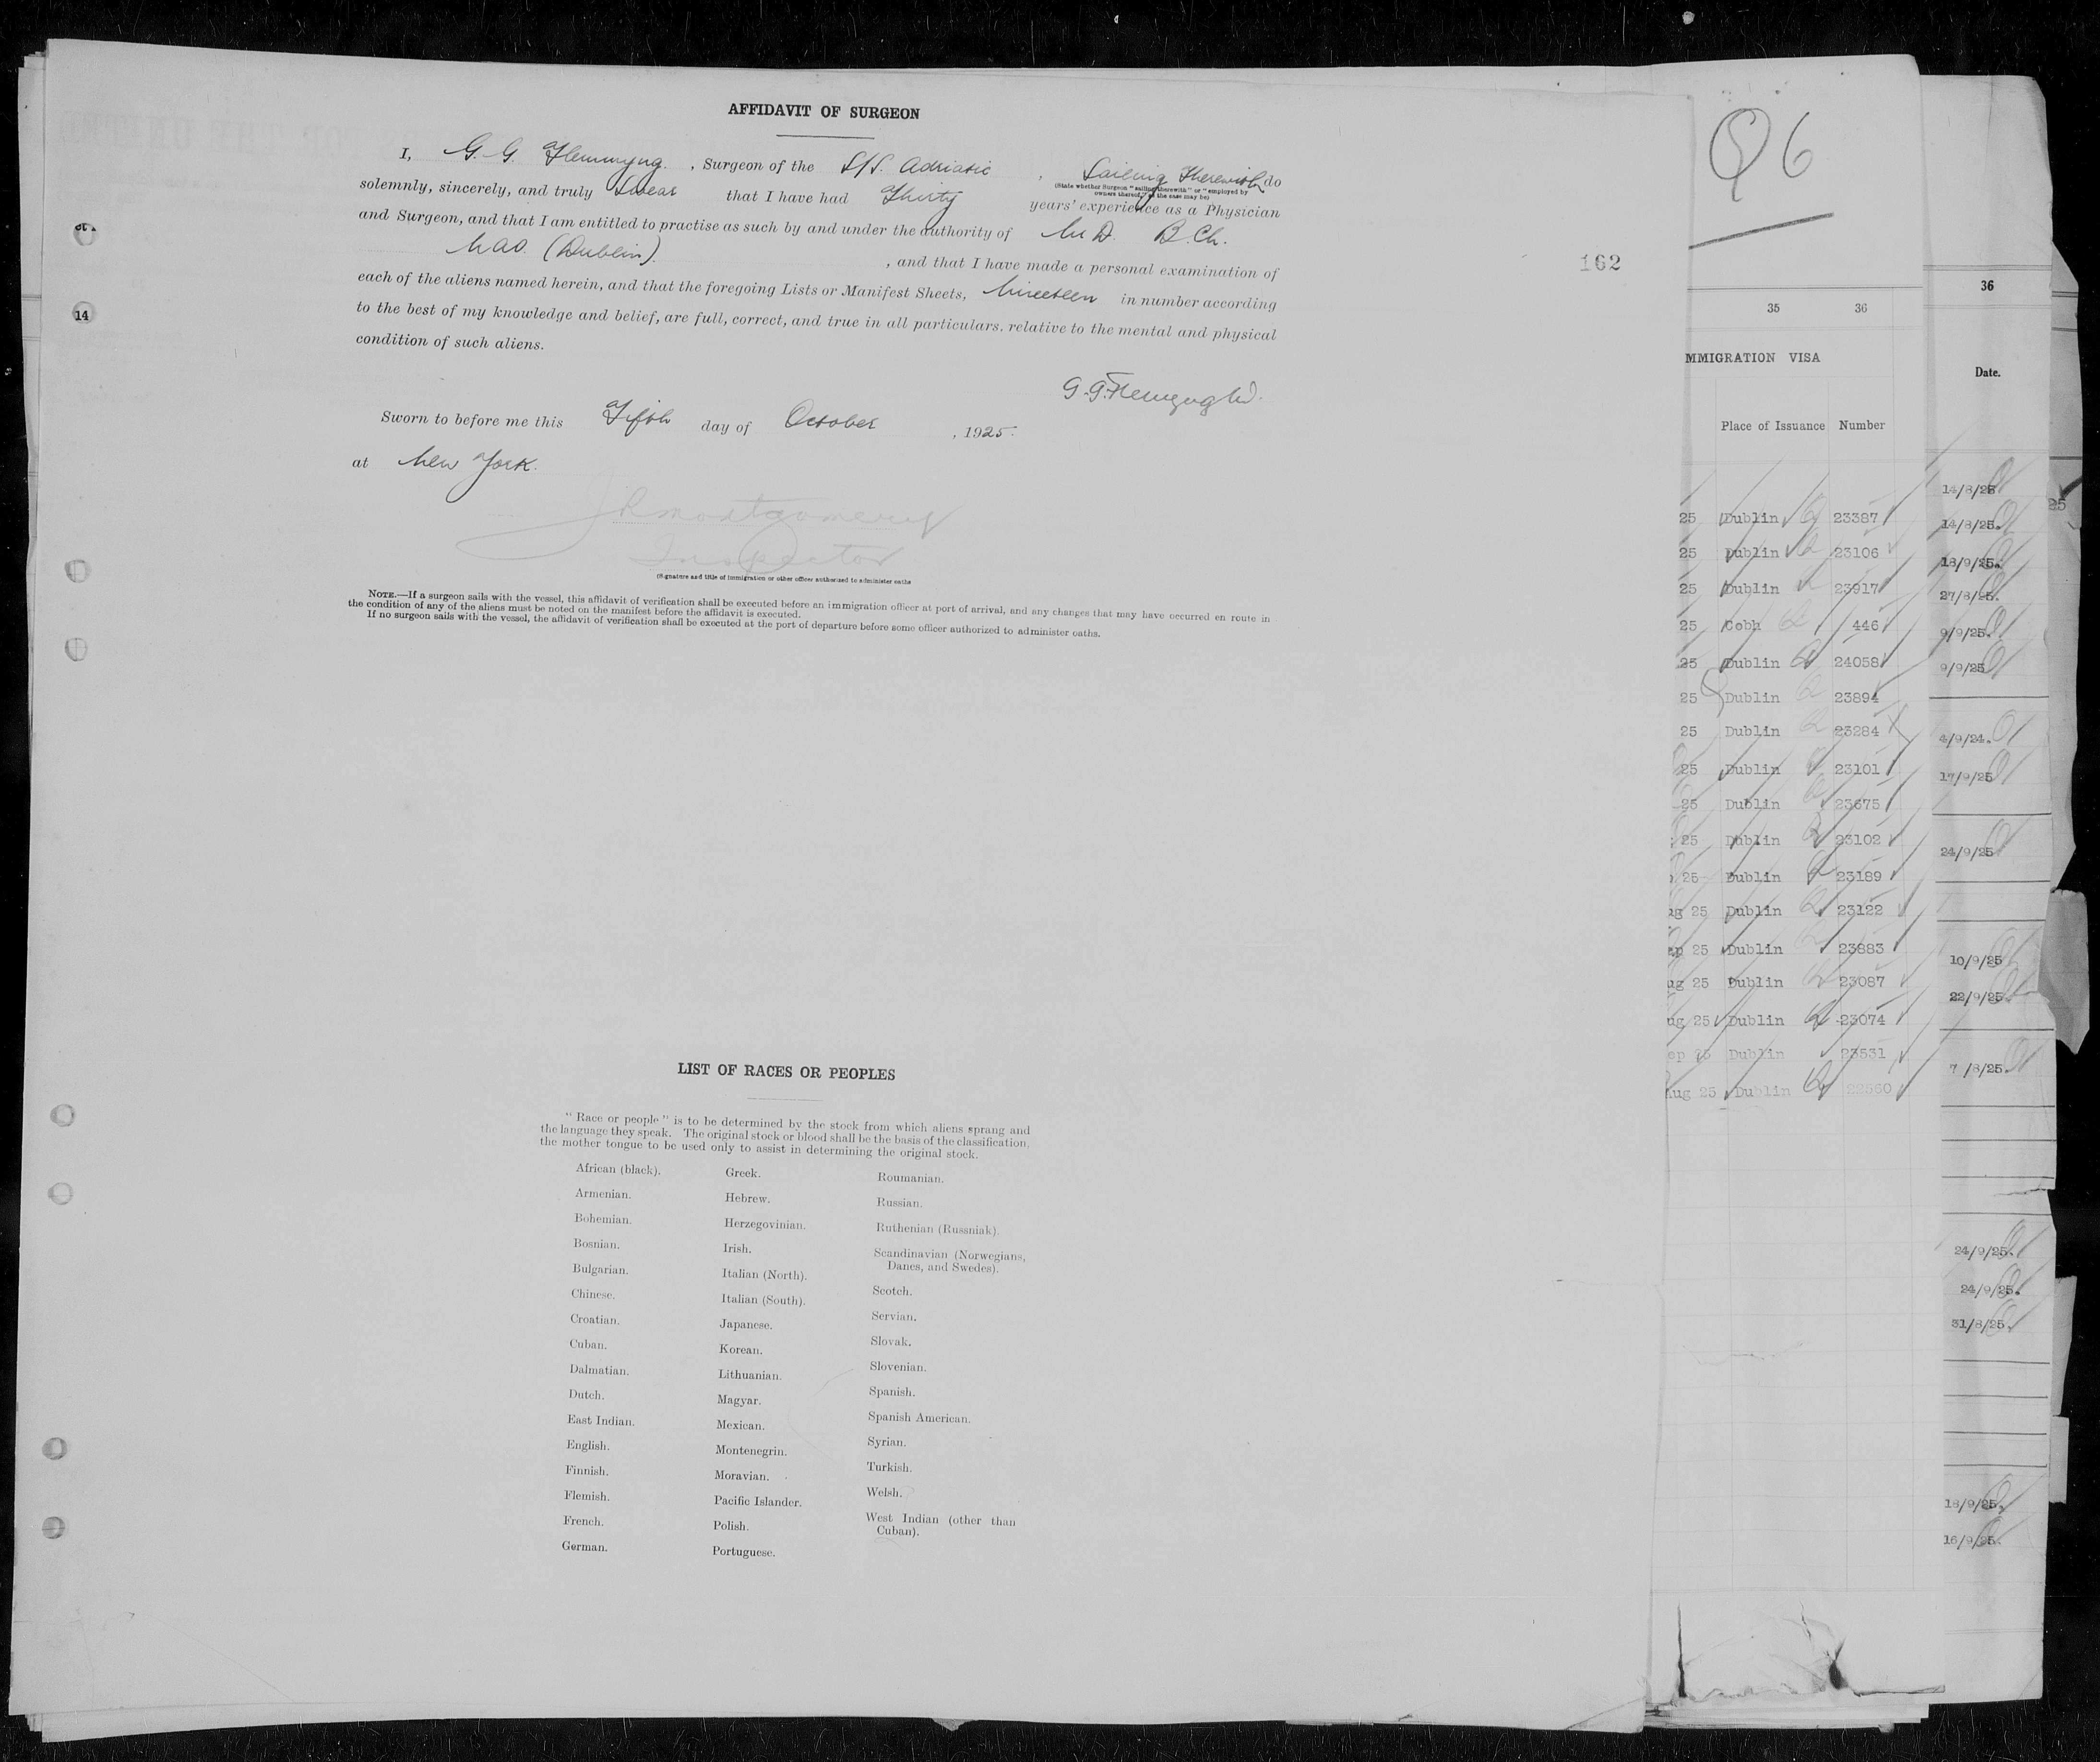 AFFIDAVIT OF SURGEON
I, G. G. Flemmyng. , Surgeon of the S/S. Adriatic , Sailing Therewith do
(State whether Surgeon "sailing therewith" or "employed by
owners thereof," as the case may be)
solemnly, sincerely, and truly swear that I have had Thirty years' experience as a Physician
and Surgeon, and that I am entitled to practise as such by and under the authority of M.D. B.Ch.
MAO. (Dublin). , and that I have made a personal examination of
each of the aliens named herein, and that the foregoing Lists or Manifest Sheets, Nineteen in number according
to the best of my knowledge and belief, are full, correct, and true in all particulars, relative to the mental and physical
condition of such aliens.
Sworn to before me this Fifth day of October , 1925.
at New York.
Inspector
(Signature and title of immigration or other officer authorized to administer oaths
NOTE.—If a surgeon sails with the vessel, this affidavit of verification shall be executed before an immigration officer at port of arrival, and any changes that may have occurred en route in
the condition of any of the aliens must be noted on the manifest before the affidavit is executed.
If no surgeon sails with the vessel, the affidavit of verification shall be executed at the port of departure before some officer authorized to administer oaths.
162
14
LIST OF RACES OR PEOPLES
"Race or people" is to be determined by the stock from which aliens sprang and
the language they speak. The original stock or blood shall be the basis of the classification,
the mother tongue to be used only to assist in determining the original stock.
African (black).
Armenian.
Bohemian.
Bosnian.
Bulgarian.
Chinese.
Croatian.
Cuban.
Dalmatian.
Dutch.
East Indian.
English.
Finnish.
Flemish.
French.
German.
Greek.
Hebrew.
Herzegovinian.
Irish.
Italian (North).
Italian (South).
Japanese.
Korean.
Lithuanian.
Magyar.
Mexican.
Montenegrin.
Moravian.
Pacific Islander.
Polish.
Portuguese.
Roumanian.
Russian.
Ruthenian (Russniak).
Scandinavian (Norwegians,
Danes, and Swedes).
Scotch.
Servian.
Slovak.
Slovenian.
Spanish.
Spanish American.
Syrian.
Turkish.
Welsh.
West Indian (other than
Cuban).
35 36
MMIGRATION VISA
Place of Issuance Number
25 Dublin 23387
25 Dublin 23106
25 Dublin 23917
25 Cobh 446
25 Dublin 24058
25 Dublin 23894
25 Dublin 23284
25 Dublin 23101
25 Dublin 23675
25 Dublin 23102
25 Dublin 23189
ug 25 Dublin 23122
ep 25 Dublin 23883
ug 25 Dublin 23087
ug 25 Dublin 23074
ep 25 Dublin 23531
Aug 25 Dublin 22560
36
Date.
14/8/25
14/8/25.
18/9/25.
27/8/25.
9/9/25.
9/9/25
4/9/24.
17/9/25
24/9/25
10/9/25
22/9/25.
7 /8/25.
24/9/25.
24/9/25.
31/8/25.
18/9/25.
16/9/25.
25